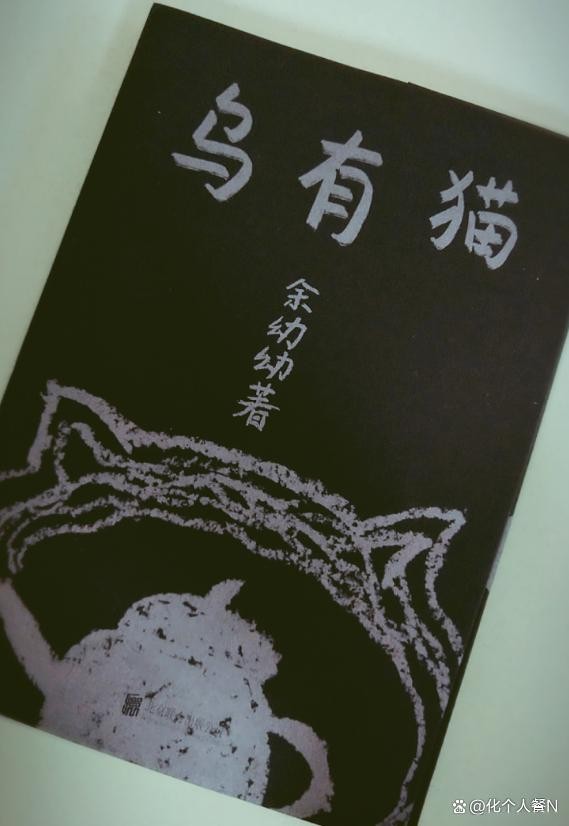 乌有猫
余幼幼著
@化个人餐N